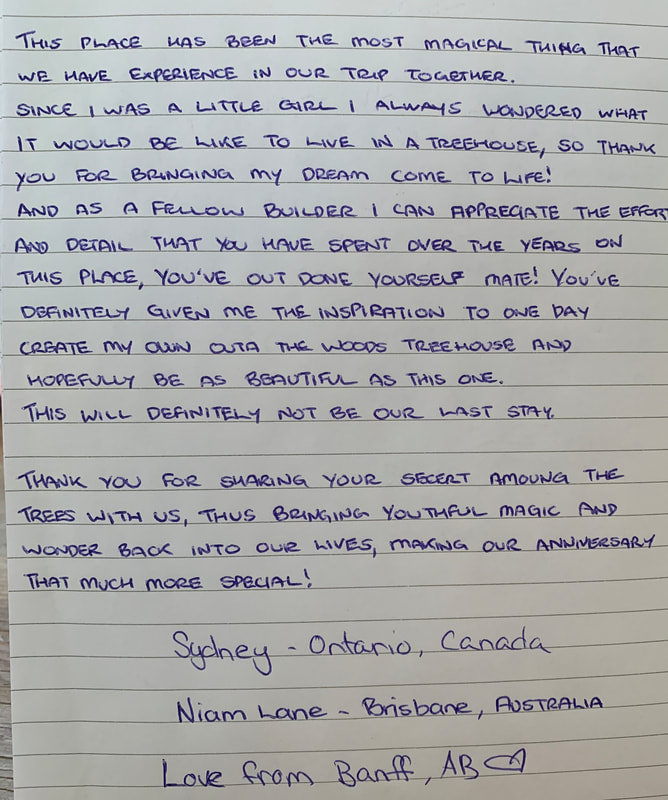 THIS PLACE HAS BEEN THE MOST MAGICAL THING THAT
WE HAVE EXPERIENCE IN OUR TRIP TOGETHER.
SINCE I WAS A LITTLE GIRL I ALWAYS WONDERED WHAT
IT WOULD BE LIKE TO LIVE IN A TREEHOUSE, SO THANK
YOU FOR BRINGING MY DREAM COME TO LIFE!
AND AS A FELLOW BUILDER I CAN APPRECIATE THE EFFORT
AND DETAIL THAT YOU HAVE SPENT OVER THE YEARS ON
THIS PLACE, YOU'VE OUT DONE YOURSELF MATE! YOU'VE
DEFINITELY GIVEN ME THE INSPIRATION TO ONE DAY
CREATE MY OWN OUTA THE WOODS TREEHOUSE AND
HOPEFULLY BE AS BEAUTIFUL AS THIS ONE.
THIS WILL DEFINITELY NOT BE OUR LAST STAY.
THANK YOU FOR SHARING YOUR SECERT AMOUNG THE
TREES WITH US, THUS BRINGING YOUTHFUL MAGIC AND
WONDER BACK INTO OUR LIVES, MAKING OUR ANNIVERSARY
THAT MUCH MORE SPECIAL!
Sydney - Ontario, Canada
Niam Lane - Brisbane, AUSTRALIA
Love from Banff, AB ♡